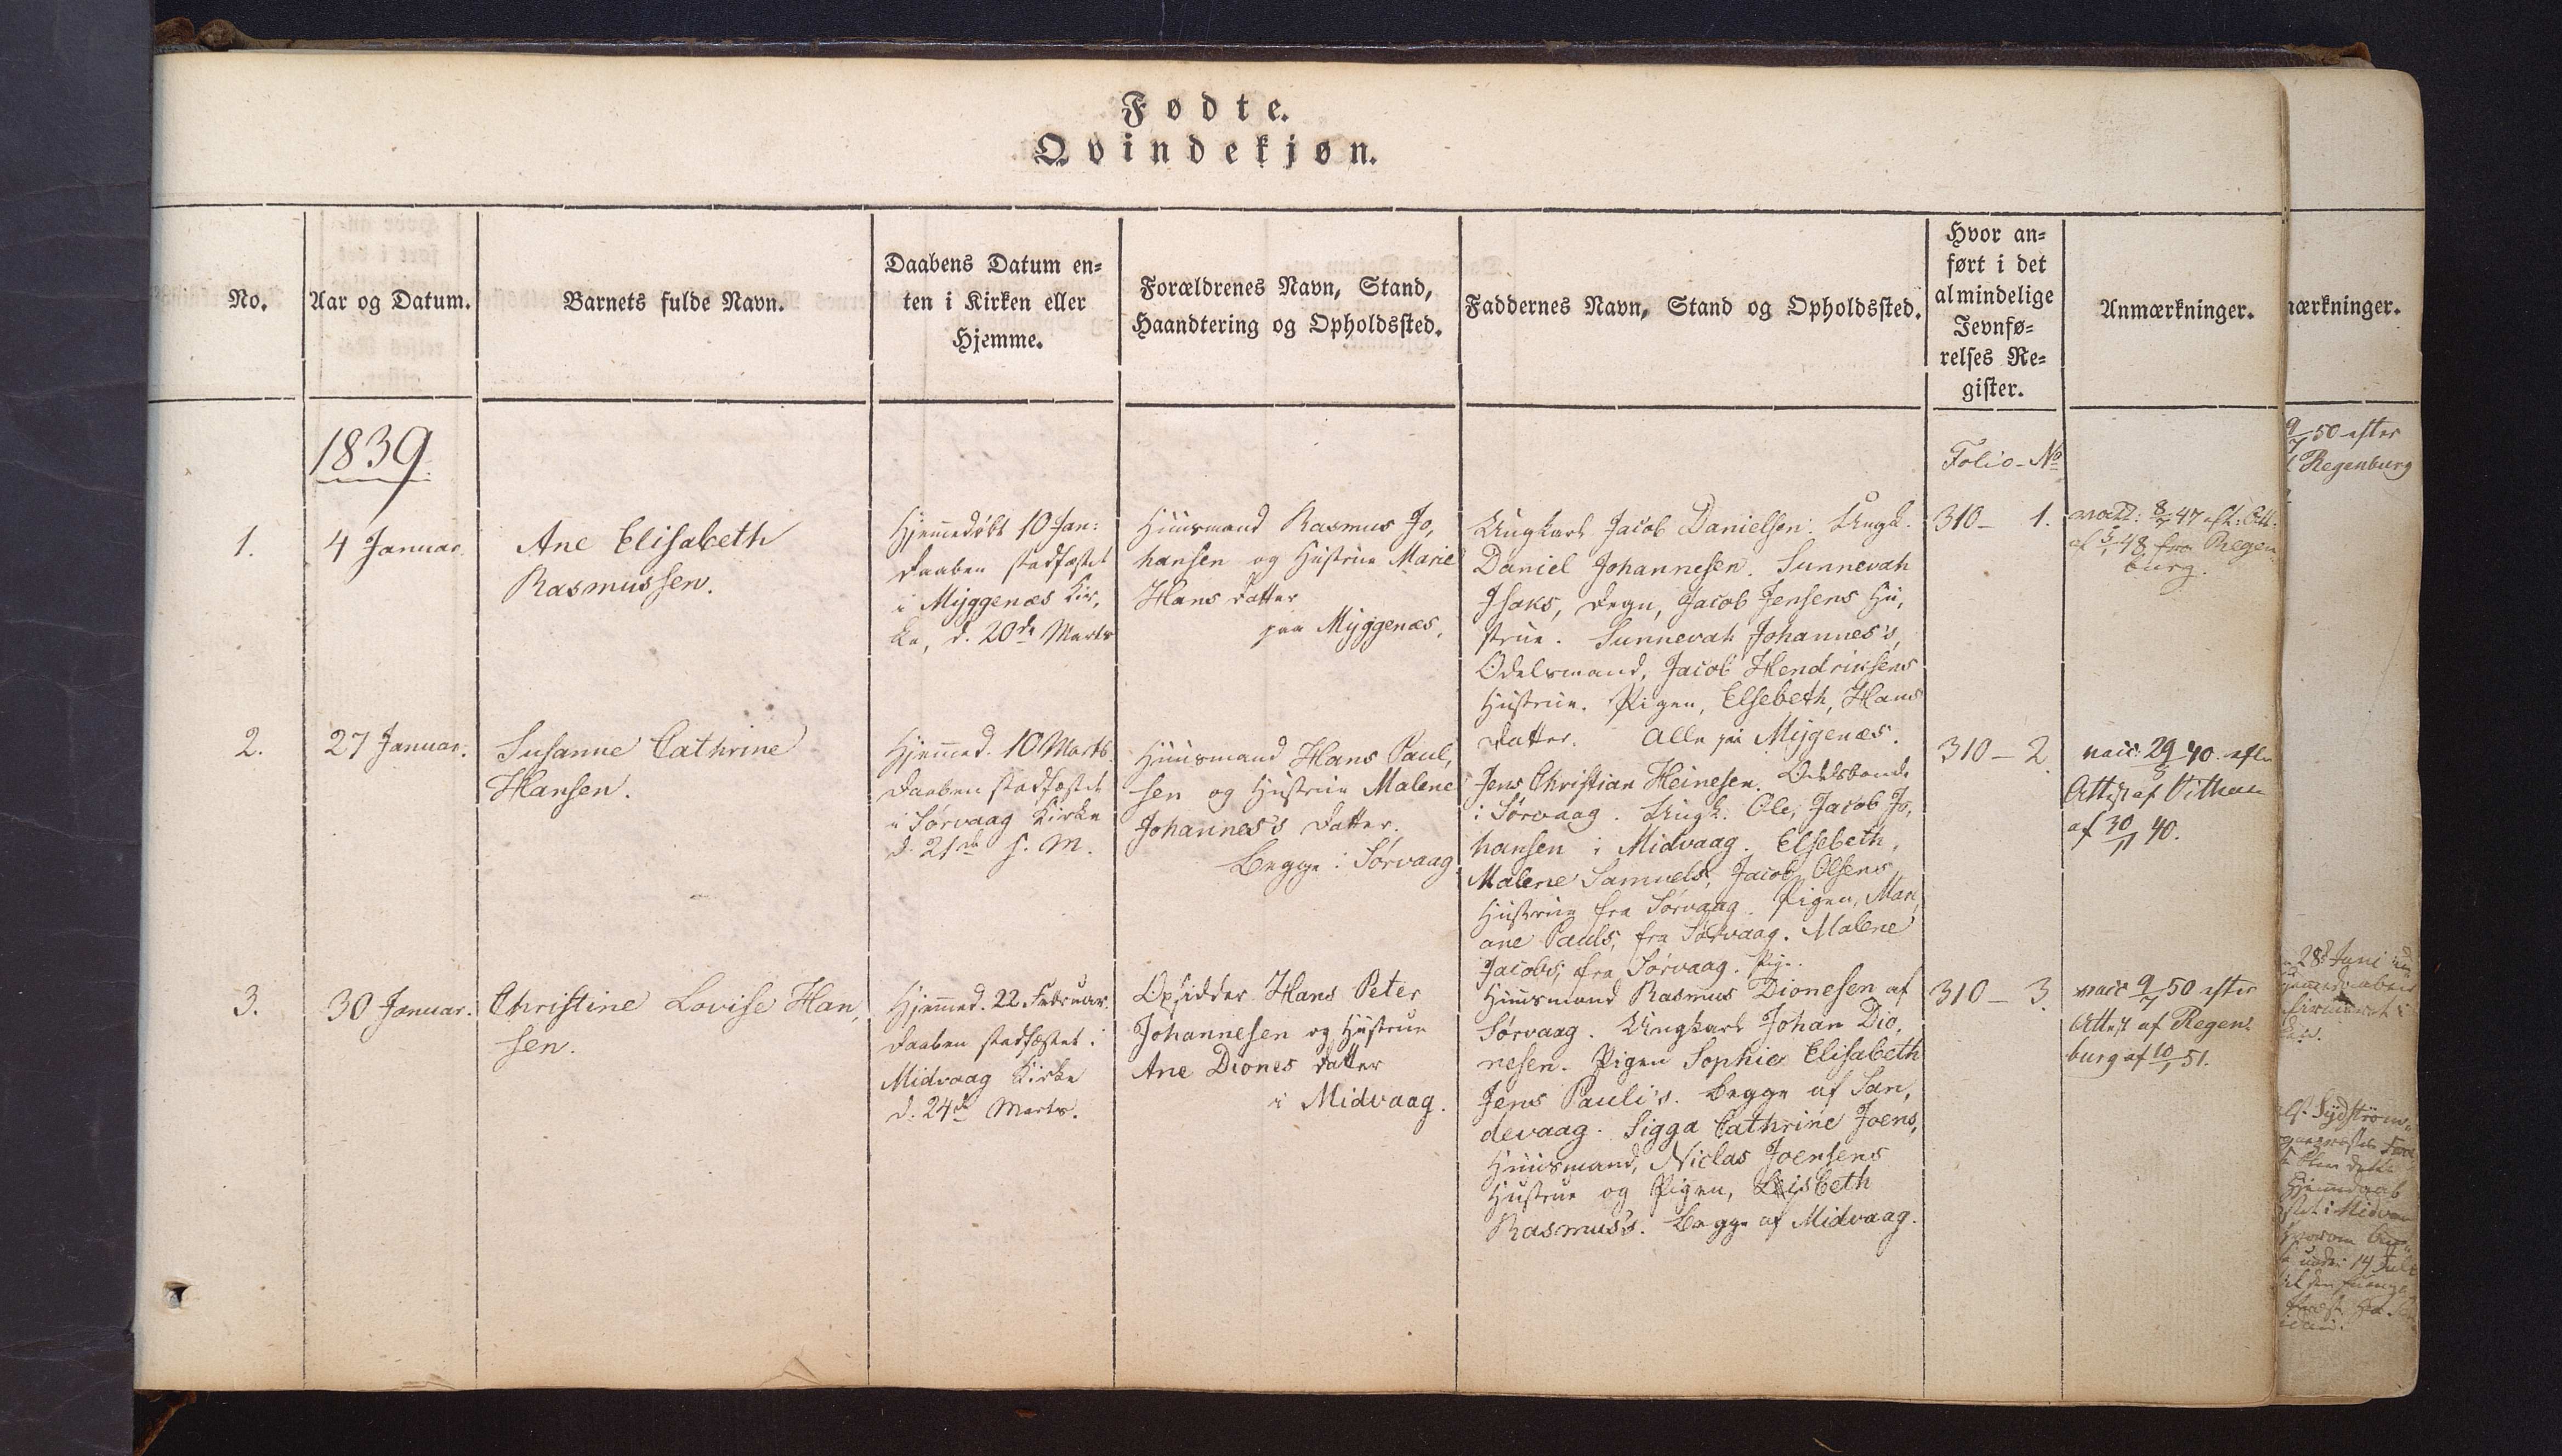 Fødte.
Qvindekjøn.
No.
Aar og Datum.
Barnets fulde Navn.
Daabens Datum en-
ten i Kirken eller
Hjemme.
Forældrenes Navn, Stand,
Haandtering og Opholdssted.
Faddernes Navn, Stand og Opholdssted.
Hvor an-
ført i det
almindelige
Jevnfø-
relses Re-
gister.
Anmærkninger.
nærkninger.
1839
Folio - No
1.
4 Januar.
Ane Elisabeth
Rasmussen.
Hjemmedøbt 10 Jan:
Daaben stadfæstet
i Myggenæs Kir,
ke, d. 20de Marts
Huusmand Rasmus Jo,
hansen og Hustrue Marie
Hans Datter
paa Myggenæs.
Ungkarl Jacob Danielsen. Ungk.
Daniel Johannesen. Sunnevah
Isaks, Degn, Jacob Jensens Hu,
strue. Sunnevah Johannes's,
Odelsmand, Jacob Hendriksens
Hustrue. Pigen, Elsebeth, Hans
Datter. Alle paa Mygenæs.
310 - 1.
vacc: 8/7 47 eft. Att.
af 5/1 48 fra Regen
burg.
2.
27 Januar.
Susanne Cathrine
Hansen.
Hjemmed. 10 Marts.
Daaben stadfæstet
i Sørvaag Kirke
d. 21de s. M.
Huusmand Hans Paul,
sen og Hustrue Malene
Johannes's Datter.
Begge i Sørvaag
Jens Christian Heinesen. Odelsbonde
i Sørvaag. Ungk. Ole, Jacob Jo,
hansen i Midvaag. Elsebeth,
Malene Samuels, Jacob Olsens
Hustrue fra Sørvaag. Pigen, Mari,
ane Pauls, fra Sørvaag. Malene
Jacobs, fra Sørvaag. Pige.
310 - 2
vacc: 29/8 40. efter
Attest af
af 30/11 40.
3.
30 Januar.
Christine Lovise Han,
sen.
Hjemmed. 22 Februar.
Daaben stadfæstet i
Midvaag Kirke
d. 24de Marts.
Opsidder Hans Peter
Johannesen og Hustrue
Ane Diones Datter
i Midvaag.
Huusmand Rasmus Dionesen af
Sørvaag. Ungkarl Johan Dio,
nesen. Pigen Sophie Elisabeth
Jens Pauli's. Begge af San,
devaag. Sigga Cathrine Joens,
Huusmand, Niclas Joensens
Hustrue og Pigen, Lisbeth
Rasmus's. Begge af Midvaag.
310 - 3
vacc 9/7 50 efter
Attest af Regen-
burg af 10/1 51.
9/7 50 efter
Regenburg
28de Juni
Sydstrøm
Hjemmedaab
i Midvaa
under 14 Juli